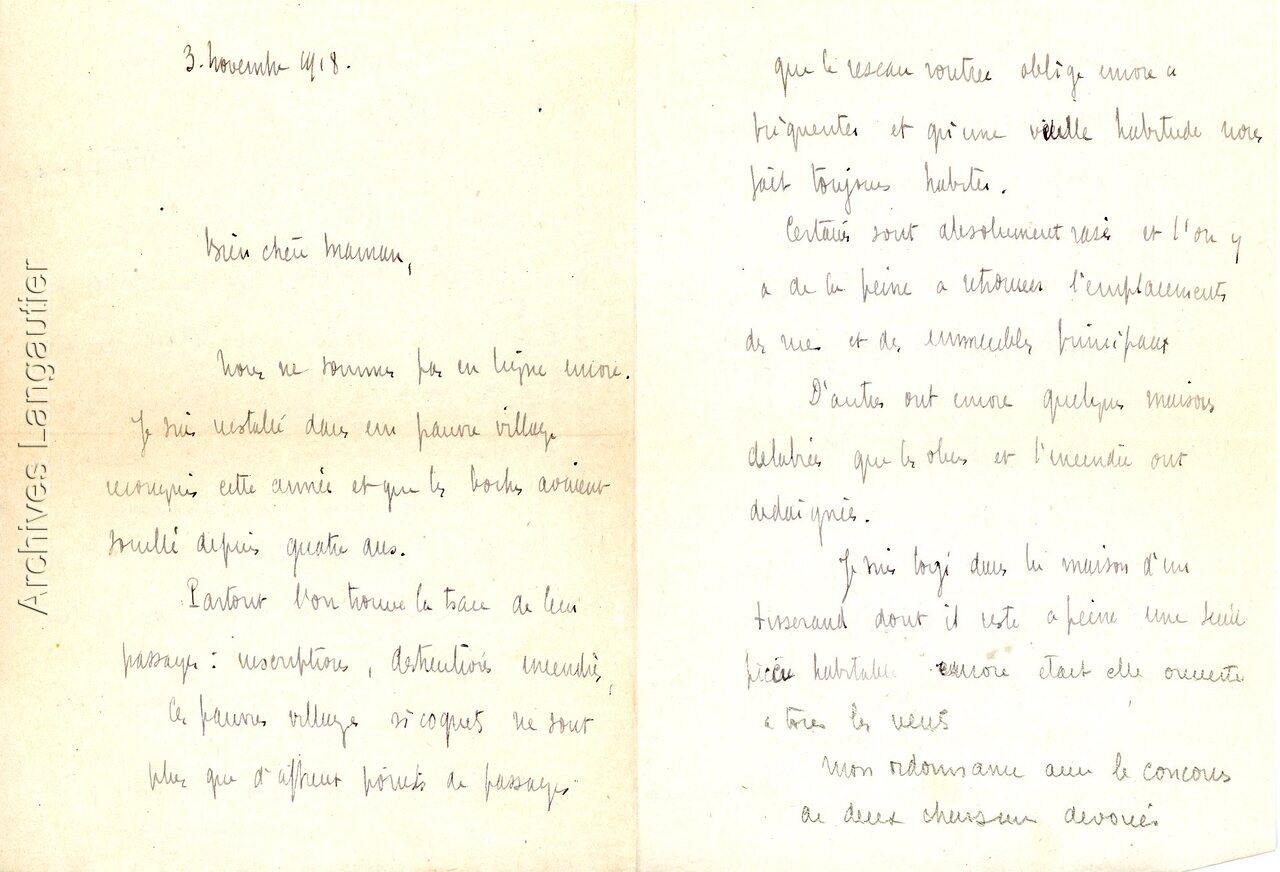 3. novembre 1918.
Bien chère Maman,
Nous ne sommes pas en ligne encore.
Je suis installé dans un pauvre village
reconquis cette année et que les boches avaient
souillé depuis quatre ans.
Partout l'on trouve la trace de leur
passage : inscriptions, destructions incendies,
Ces pauvres villages si coquets ne sont
plus que d'affreux points de passages
que le reseau routier oblige encore a
fréquenter et qu'une vieille habitude nous
fait toujours habiter.
Certains sont absolument rasés et l'on y
a de la peine a retrouver l'emplacements
des rues et des immeubles principaux
D'autres ont encore quelques maisons
delabrées que les obus et l'incendie ont
dedaignées.
Je suis logé dans la maison d'un
tisserand dont il reste a peine une seule
pièce habitable encore etait elle ouverte
a tous les vents
Mon ordonnance avec le concours
de deux chasseurs devoués
Archives Langautier